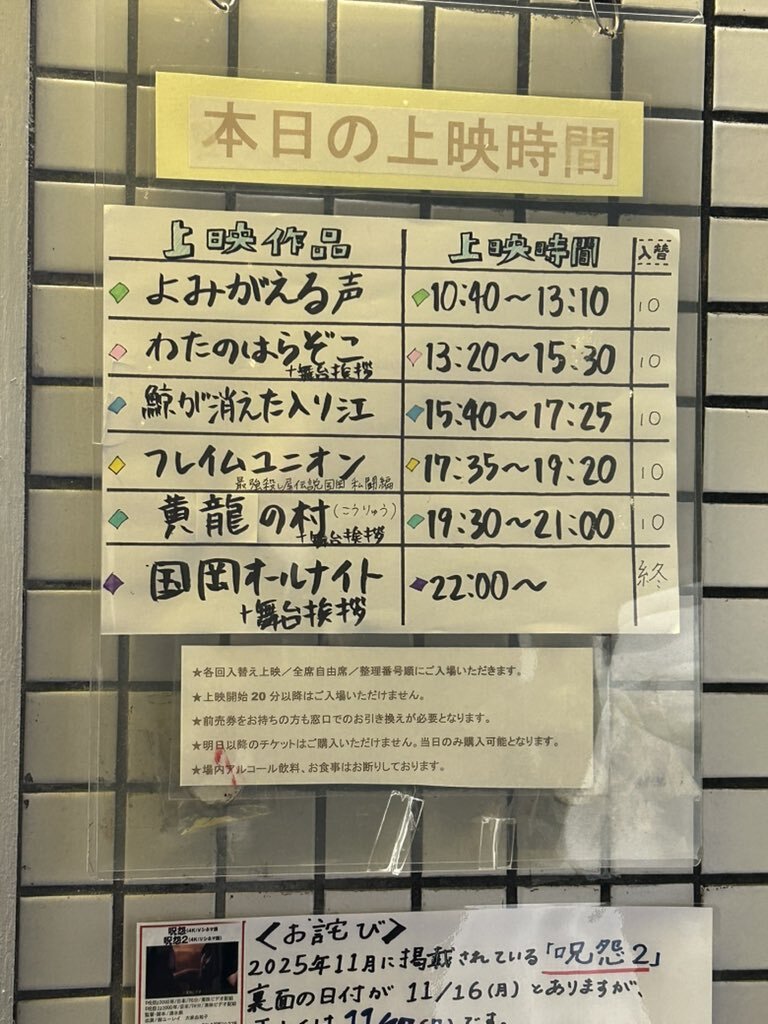 本日の上映時間
上映作品 上映時間 入替
よみがえる声 10:40〜13:10 10
わたのはらぞこ 13:20〜15:30 10
+舞台挨拶
鯨が消えた入り江 15:40〜17:25 10
フレイムユニオン 17:35〜19:20 10
最強殺し屋伝説国岡 私闘編
黄龍の村(こうりゅう) 19:30〜21:00 10
+舞台挨拶
国岡オールナイト 22:00〜 終
+舞台挨拶
★各回入替え上映/全席自由席/整理番号順にご入場いただきます。
★上映開始20分以降はご入場いただけません。
★前売券をお持ちの方も窓口でのお引き換えが必要となります。
★明日以降のチケットはご購入いただけません。当日のみ購入可能となります。
★場内アルコール飲料、お食事はお断りしております。
呪怨(4K/Vシネマ版)
呪怨2(4K/Vシネマ版)
<お詫び>
2025年11月に掲載されている「呪怨2」
裏面の日付が 11/16(月)とありますが、
です。